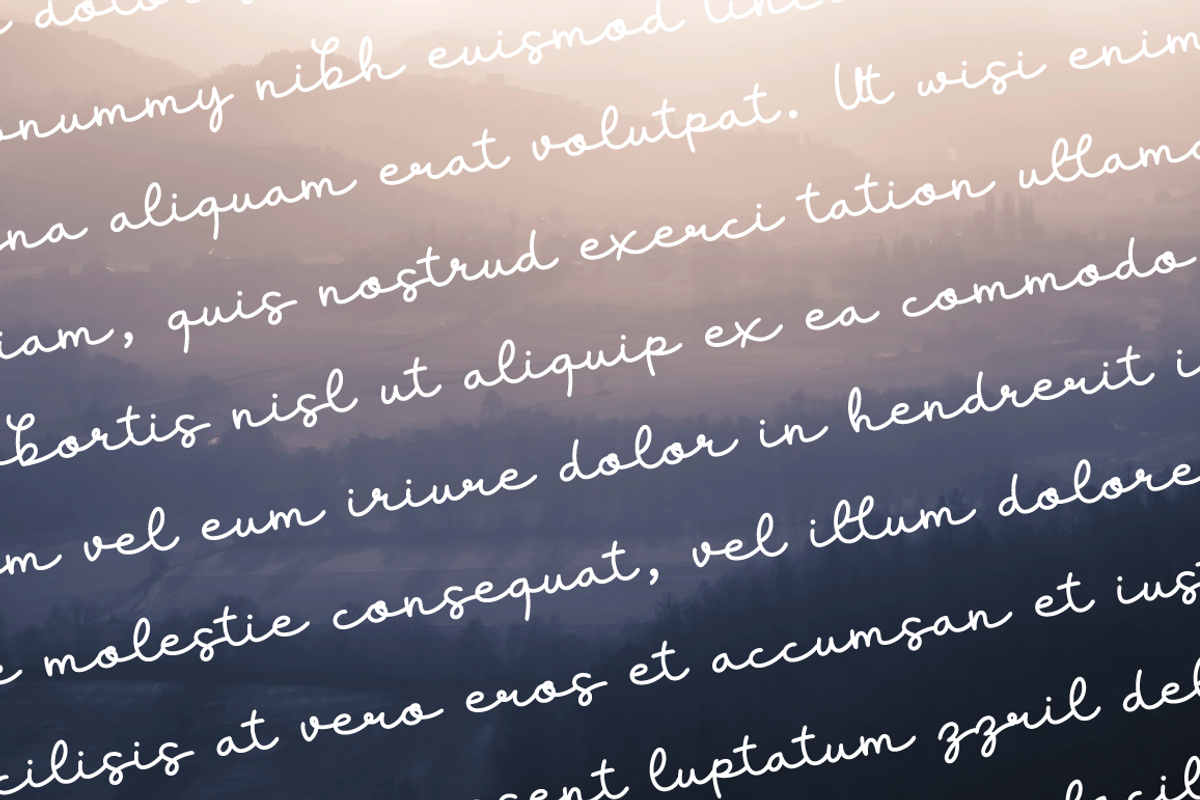 dolor
onummy nibh euismod tinc
na aliquam erat volutpat. Ut wisi enim
iam, quis nostrud exerci tation ullamc
bortis nisl ut aliquip ex ea commodo
m vel eum iriure dolor in hendrerit i
e molestie consequat, vel illum dolore
cilisis at vero eros et accumsan et iust
sent luptatum zzril del
facil